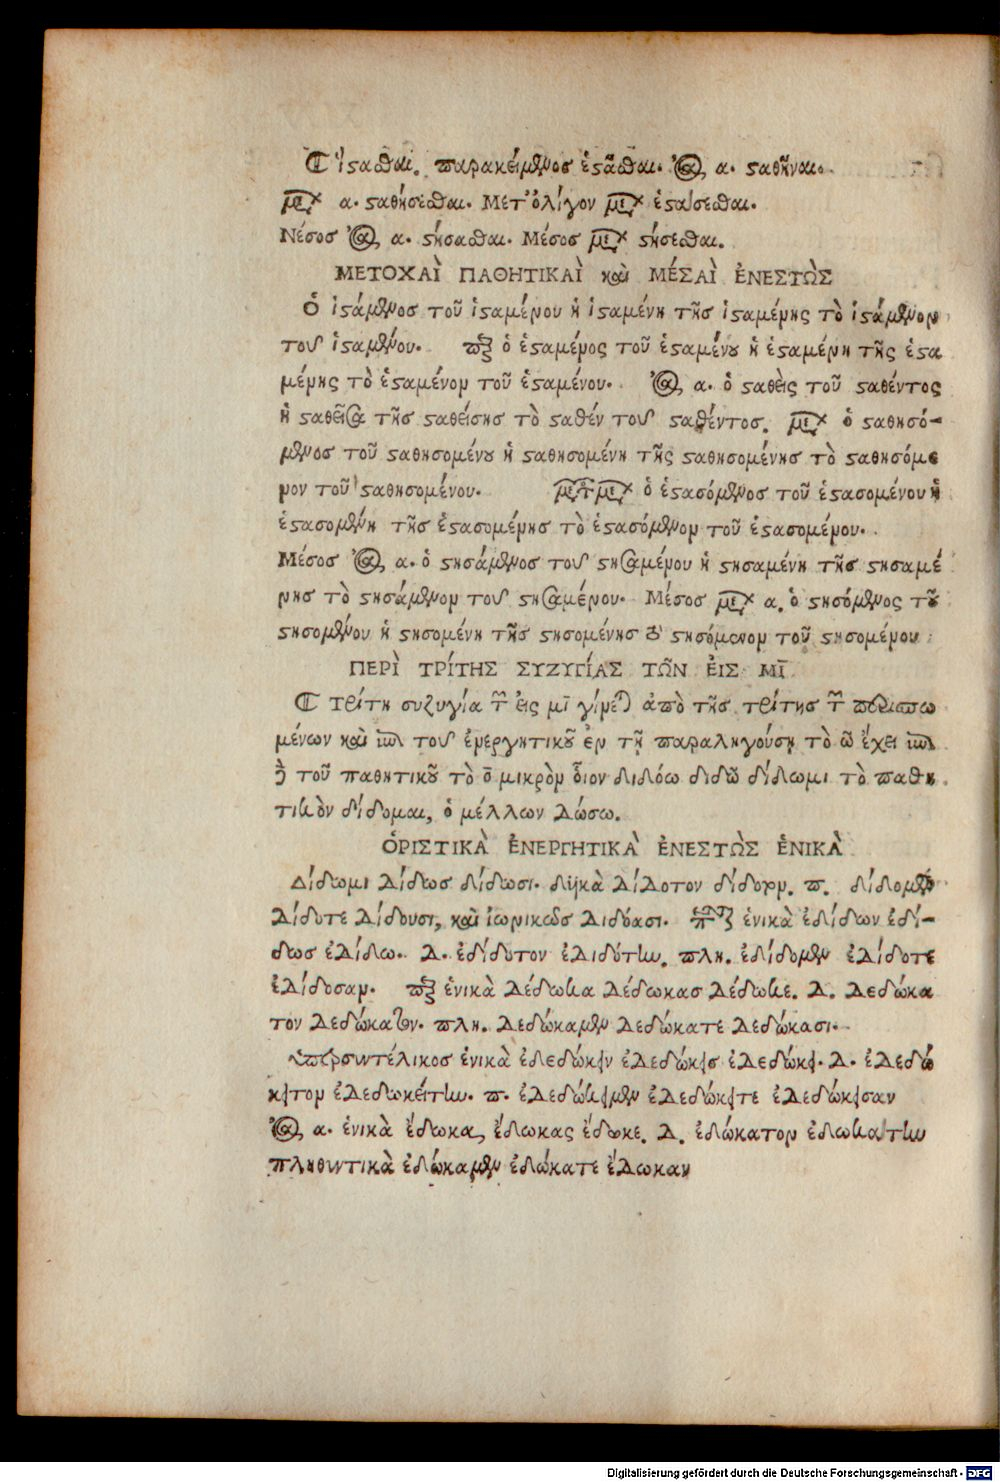 ἵσταςθαι. παρακείμενος ἑστᾶσθαι. α. σταθῆναι.
α. σταθήσεσθαι. Μετ' ὀλίγον ἑστάσεσθαι.
Μέσος α. στήσασθαι. Μέσος στήσεσθαι.
ΜΕΤΟΧΑῚ ΠΑΘΗΤΙΚΑῚ καὶ ΜΈΣΑῚ ἘΝΕΣΤῺΣ
Ὁ ἱστάμενος τοῦ ἱσταμένου ἡ ἱσταμένη τῆς ἱσταμένης τὸ ἱστάμενον
τοῦ ἱσταμένου. ὁ ἑσταμένος τοῦ ἑσταμένου ἡ ἑσταμένη τῆς ἑστα
μένης τὸ ἑσταμένον τοῦ ἑσταμένου. α. ὁ σταθεὶς τοῦ σταθέντος
ἡ σταθεῖσα τῆς σταθείσης τὸ σταθέν τοῦ σταθέντος. ὁ σταθησό-
μενος τοῦ σταθησομένου ἡ σταθησομένη τῆς σταθησομένης τὸ σταθησόμε
νον τοῦ σταθησομένου. ὁ ἑστασόμενος τοῦ ἑστασομένου ἡ
ἑστασομένη τῆς ἑστασομένης τὸ ἑστασόμενον τοῦ ἑστασομένου.
Μέσος α. ὁ στησάμενος τοῦ στησαμένου ἡ στησαμένη τῆς στησαμέ
νης τὸ στησάμενον τοῦ στησαμένου. Μέσος α. ὁ στησόμενος τοῦ
στησομένου ἡ στησομένη τῆς στησομένης τὸ στησόμενον τοῦ στησομένου
ΠΕΡῚ ΤΡΊΤΗΣ ΣΥΖΥΓΊΑΣ ΤΩ͂Ν ἘΙΣ ΜῙ
Τρίτη συζυγία τῶν εἰς μῑ γίνεται ἀπὸ τῆς τρίτης τῶν περισπω
μένων καὶ τοῦ ἐνεργητικοῦ ἐν τῇ παραληγούσῃ τὸ ω̄ ἔχει
δὲ τοῦ παθητικοῦ τὸ ο̄ μικρὸν οἷον διδόω διδῶ δίδωμι τὸ παθη
τικὸν δίδομαι, ὁ μέλλων δώσω.
ὉΡΙΣΤΙΚᾺ ἘΝΕΡΓΗΤΙΚᾺ ἘΝΕΣΤῺΣ ἙΝΙΚᾺ
Δίδωμι δίδως δίδωσι. δϋκὰ δίδοτον δίδοτον. π. δίδομεν
δίδοτε δίδουσι, καὶ ἰωνικῶς διδόασι. ἑνικὰ ἐδίδων ἐδί-
δως ἐδίδω. Δ. ἐδίδοτον ἐδιδότην. πλη. ἐδίδομεν ἐδίδοτε
ἐδίδοσαν. ἑνικὰ δέδωκα δέδωκας δέδωκε. Δ. δεδώκα
τον δεδώκατον. πλη. δεδώκαμεν δεδώκατε δεδώκασι.
ὑπερσυντέλικος ἑνικὰ ἐδεδώκειν ἐδεδώκεις ἐδεδώκει. Δ. ἐδεδώ
κειτον ἐδεδωκείτην. π. ἐδεδώκειμεν ἐδεδώκειτε ἐδεδώκεισαν
α. ἑνικὰ ἔδωκα, ἔδωκας ἔδωκε. Δ. ἐδώκατον ἐδωκάτην
πληθυντικὰ ἐδώκαμεν ἐδώκατε ἔδωκαν
Digitalisierung gefördert durch die Deutsche Forschungsgemeinschaft - DFG